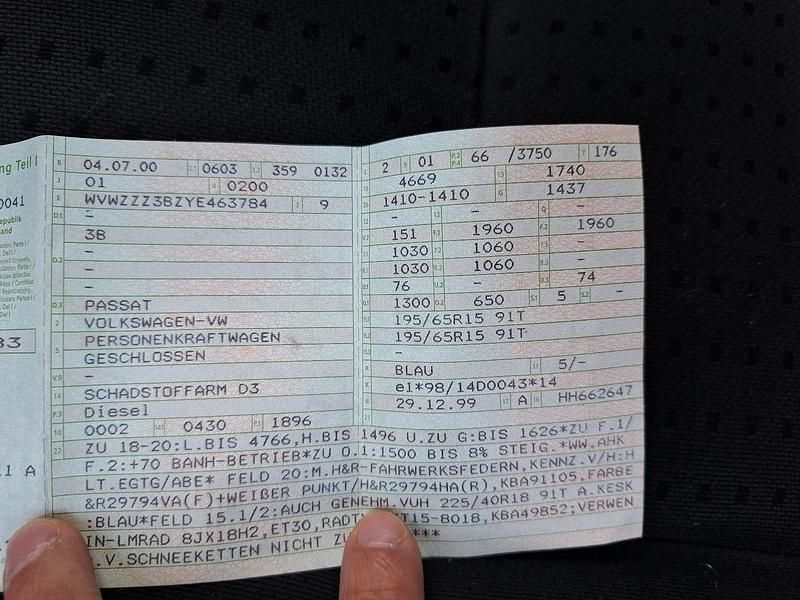 ng Teil I
0041
epublik
and
33
11 A
B 04.07.00 2.1 0603 2.2 359 0132
J 01 4 0200
E WVWZZZ3BZYE463784 3 9
D.1 -
3B
D.2 -
-
-
D.3 PASSAT
2 VOLKSWAGEN-VW
5 PERSONENKRAFTWAGEN
GESCHLOSSEN
V.9 -
14 SCHADSTOFFARM D3
P.3 Diesel
10 0002 14.1 0430 P.1 1896
L 2 9 01 P.2 P.4 66 /3750 T 176
18 4669 19 1740
20 1410-1410 G 1437
12 - 13 - Q -
V.7 151 F.1 1960 F.2 1960
7.1 1030 7.2 1060 7.3 -
8.1 1030 8.2 1060 8.3 -
U.1 76 U.2 - U.3 74
O.1 1300 O.2 650 S.1 5 S.2 -
15.1 195/65R15 91T
15.2 195/65R15 91T
15.3 -
R BLAU 11 5/-
K e1*98/14D0043*14
6 29.12.99 17 A 16 HH662647
21
22 ZU 18-20:L.BIS 4766,H.BIS 1496 U.ZU G:BIS 1626*ZU F.1/
F.2:+70 BANH-BETRIEB*ZU O.1:1500 BIS 8% STEIG.*WW.AHK
LT.EGTG/ABE* FELD 20:M.H&R-FAHRWERKSFEDERN,KENNZ.V/H:H
&R29794VA(F)+WEIßER PUNKT/H&R29794HA(R),KBA91105,FARBE
:BLAU*FELD 15.1/2:AUCH GENEHM.VUH 225/40R18 91T A.KESK
IN-LMRAD 8JX18H2,ET30,RADT T15-8018,KBA49852;VERWEN
.V.SCHNEEKETTEN NICHT ZU ***